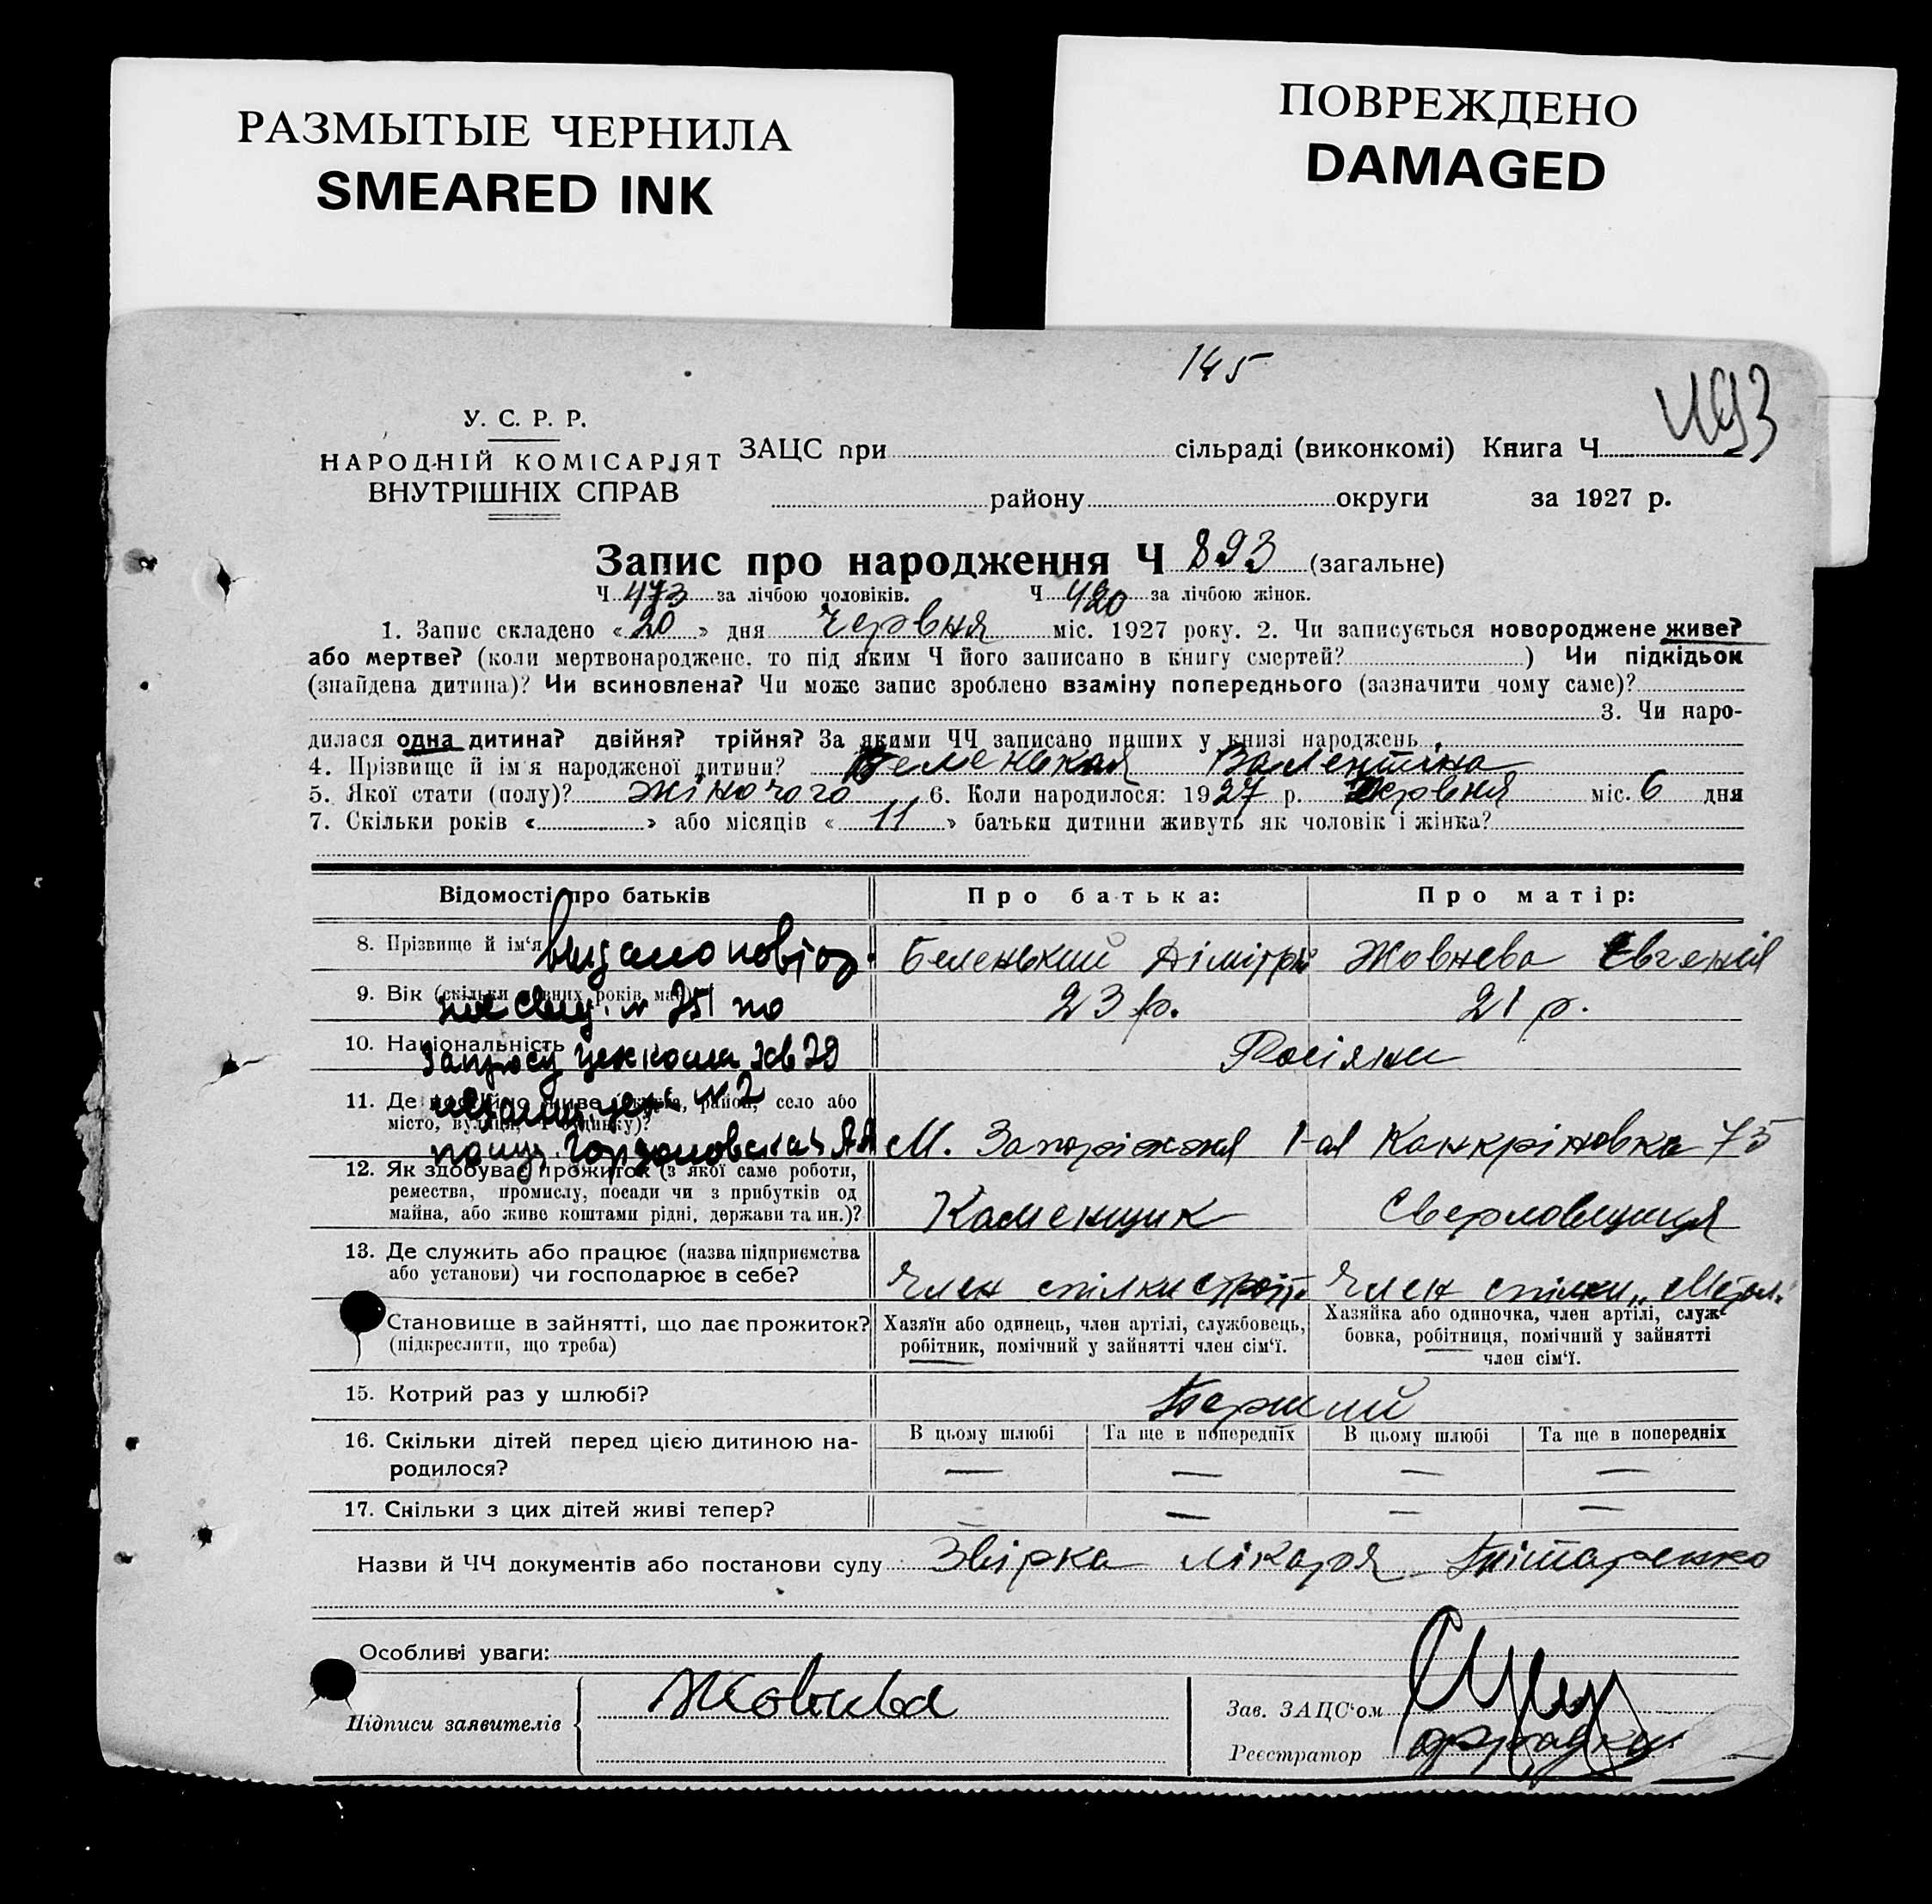 РАЗМЫТЫЕ ЧЕРНИЛА
SMEARED INK
ПОВРЕЖДЕНО
DAMAGED
145
У. С. Р. Р.
НАРОДНІЙ КОМІСАРІЯТ
ВНУТРІШНІХ СПРАВ
ЗАЦС при сільраді (виконкомі) Книга Ч
району округи за 1927 р.
Запис про народження Ч 893 (загальне)
Ч 473 за лічбою чоловіків. Ч 420 за лічбою жінок.
1. Запис складено « 20 » дня Червня міс. 1927 року. 2. Чи записується новороджене живе?
або мертве? (коли мертвонароджене, то під яким Ч його записано в книгу смертей? ) Чи підкідьок
(знайдена дитина)? Чи всиновлена? Чи може запис зроблено взаміну попереднього (зазначити чому саме)?
3. Чи наро-
дилася одна дитина? двійня? трійня? За якими ЧЧ записано инших у книзі народжень
4. Прізвище й ім'я народженої дитини? Беленькая Валентіна
5. Якої стати (полу)? жіночого 6. Коли народилося: 1927 р. Червня міс. 6 дня
7. Скільки років « » або місяців « 11 » батьки дитини живуть як чоловік і жінка?
Відомості про батьків Про батька: Про матір:
8. Прізвище й ім'я Беленький Дімітрій Жовнева Євгенія
видано повтор.
9. Вік (скільки повних років має) 23 р. 21 р.
751 по
10. Національність Росіяни
запросу
11. Де постійно живе (округа, район, село або
місто, вулиця, Ч будинку)? М. Запоріжжя 1-ая Канкріновка 75
12. Як здобуває прожиток (з якої саме роботи,
ремества, промислу, посади чи з прибутків од
майна, або живе коштами рідні, держави та ин.)? Каменщик Сверловщиця
13. Де служить або працює (назва підприємства
або установи) чи господарює в себе? Член спілки строй. Член спілки „Метал.
Становище в зайнятті, що дає прожиток?
(підкреслити, що треба)
Хазяїн або одинець, член артілі, службовець,
робітник, помічний у зайнятті член сім'ї.
Хазяйка або одиночка, член артілі, служ-
бовка, робітниця, помічний у зайнятті
член сім'ї.
15. Котрий раз у шлюбі? Перший
16. Скільки дітей перед цією дитиною на-
родилося?
В цьому шлюбі Та ще в попередніх В цьому шлюбі Та ще в попередніх
— — — —
17. Скільки з цих дітей живі тепер? — — —
Назви й ЧЧ документів або постанови суду Звірка лікаря
Особливі уваги:
Підписи заявителів Жовнева
Зав. ЗАЦС'ом
Реєстратор